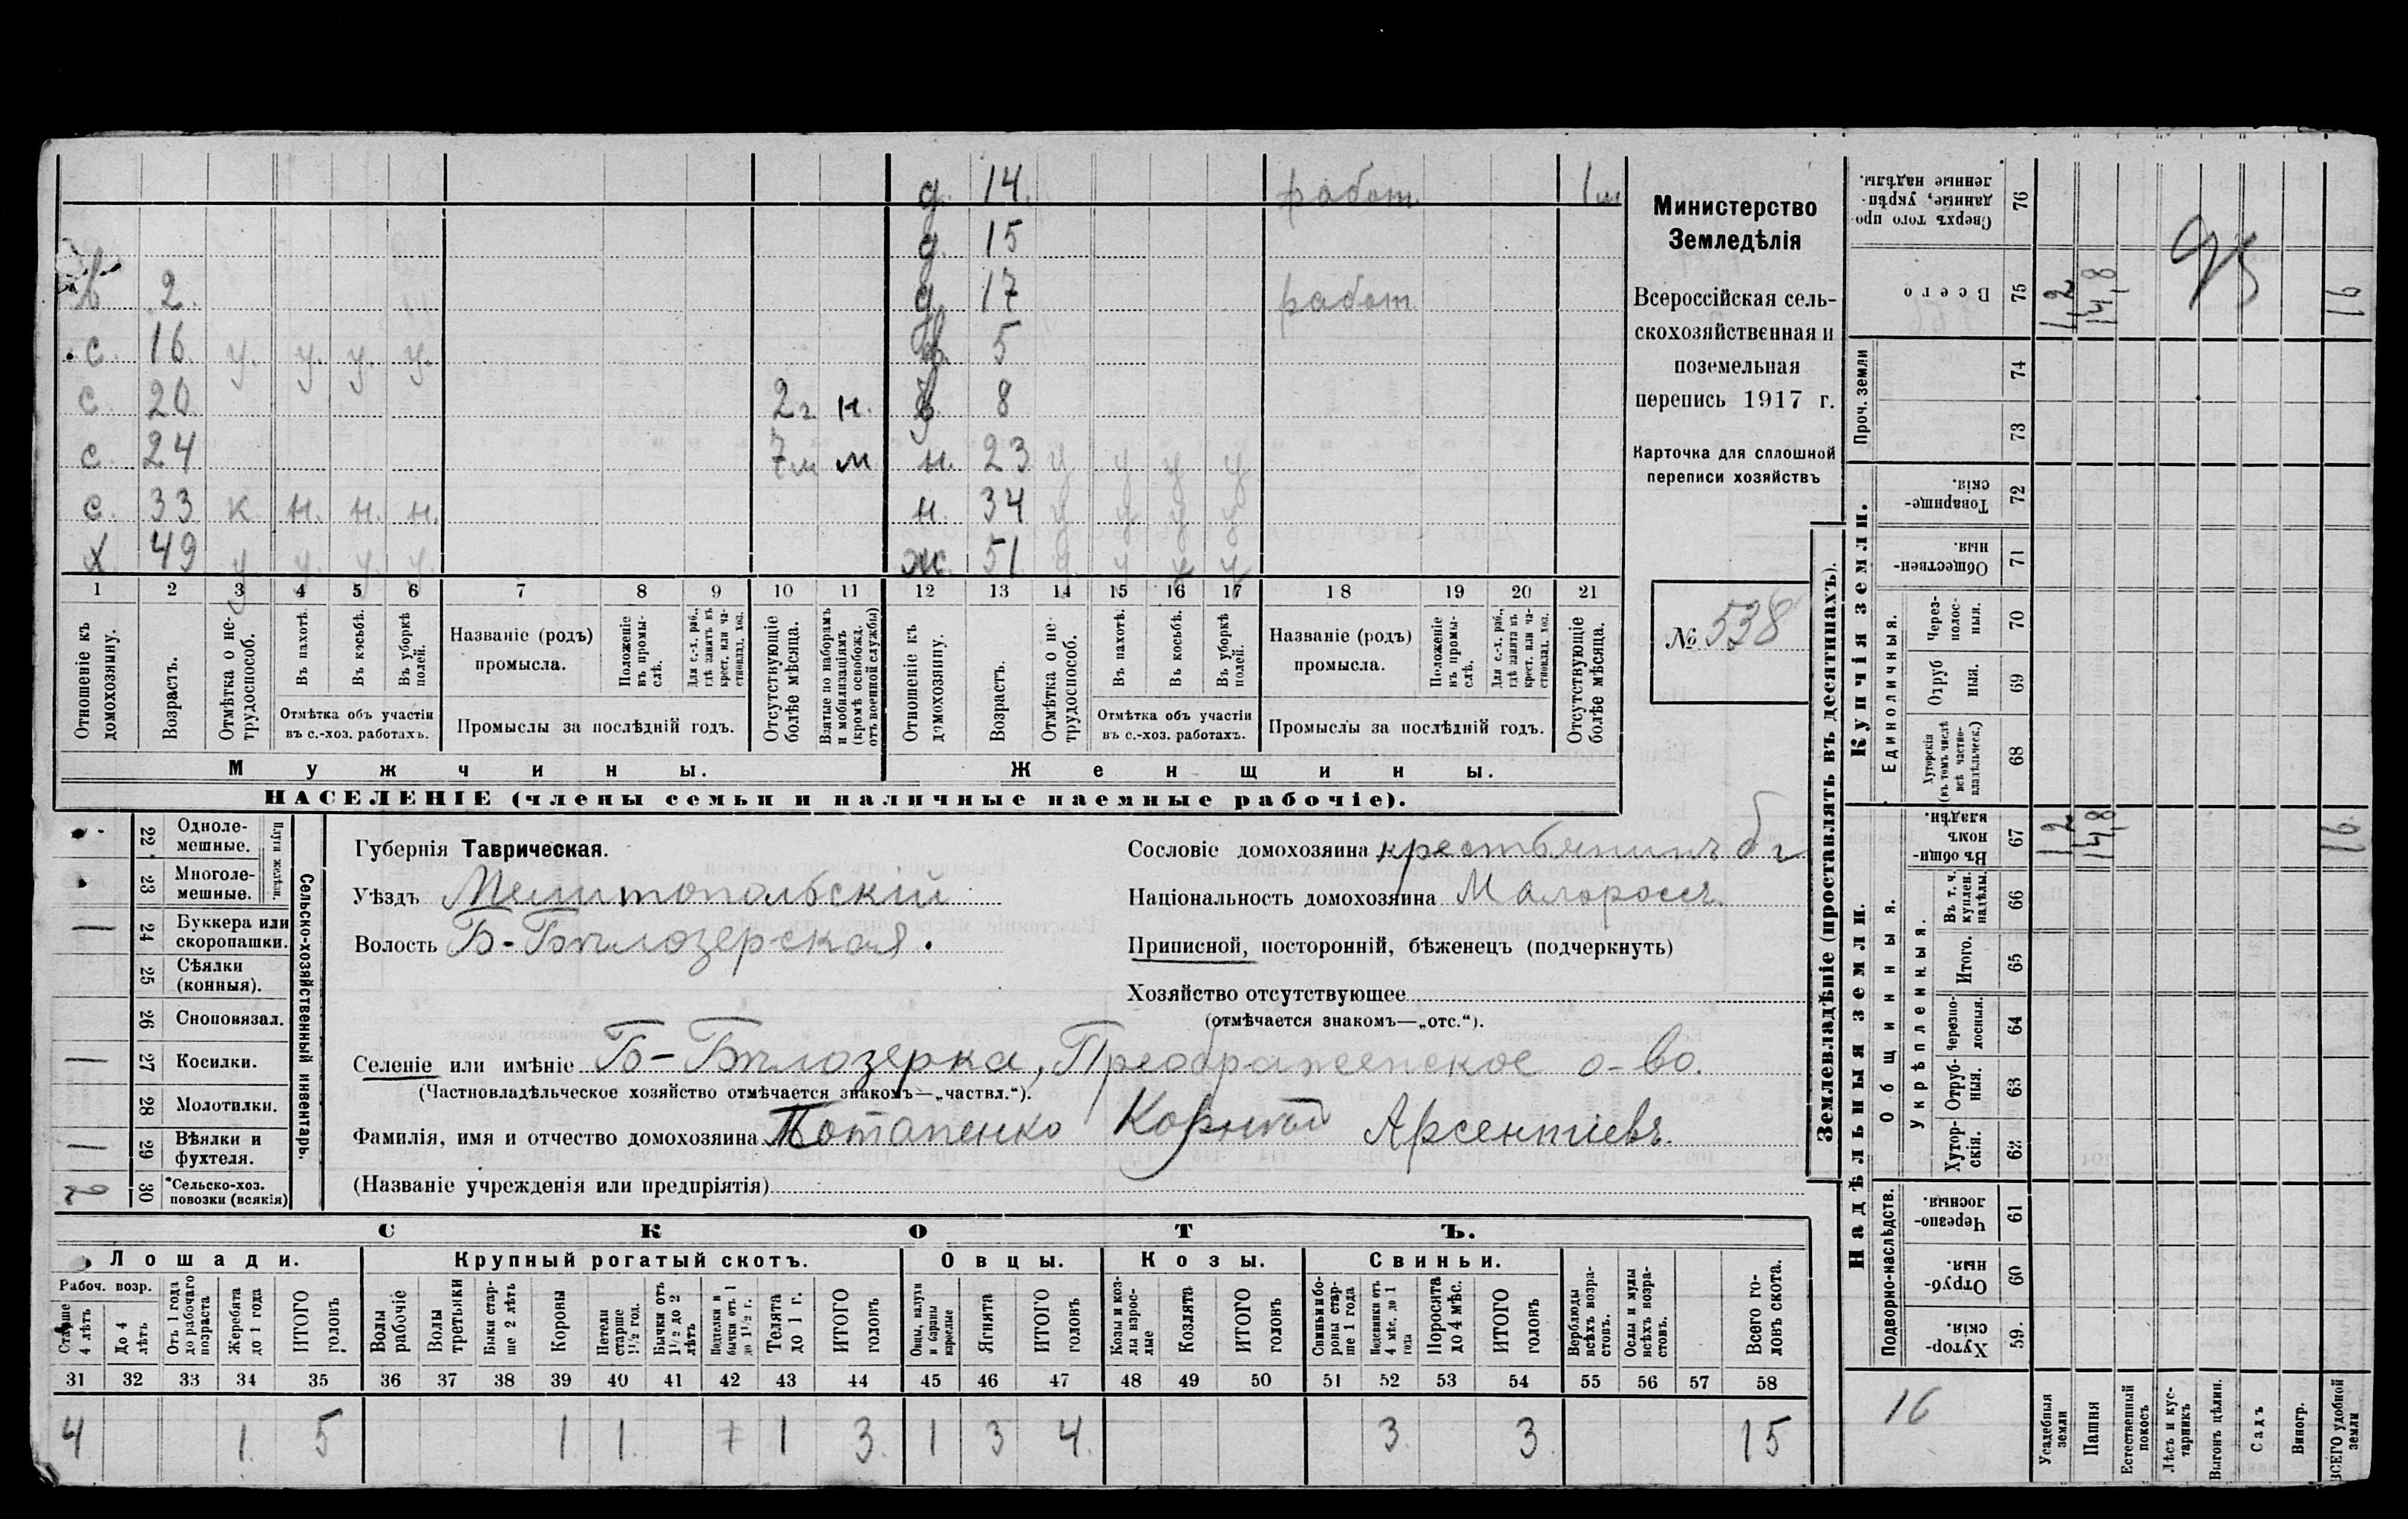 д. 14. работ. 1м
д. 15
в 2. д. 17 работ.
с. 16. у. у. у. у. в. 5
с. 20. 2г. н. в. 8
с. 24 7м м н. 23 у у у у
с. 33 к н. н. н. н. 34 у у у у
х. 49 у у. у. у. ж. 51 у. у у у
1 2 3 4 5 6 7 8 9 10 11 12 13 14 15 16 17 18 19 20 21
Отношеніе къ домохозяину.
Возрастъ.
Отмѣтка о не-трудоспособ.
Въ пахотѣ.
Въ косьбѣ.
Въ уборкѣ полей.
Отмѣтка объ участіи
въ с.-хоз. работахъ.
Названіе (родъ)
промысла.
Положеніе въ промы-слѣ.
Для с.-х. раб., гдѣ занятъ въ крест. или ча-стновлад. хоз.
Промыслы за послѣдній годъ.
Отсутствующіе болѣе мѣсяца.
Взятые по наборамъ и мобилизаціямъ (кромѣ освобожд. отъ военной службы)
Отношеніе къ домохозяину.
Возрастъ.
Отмѣтка о не-трудоспособ.
Въ пахотѣ.
Въ косьбѣ.
Въ уборкѣ полей.
Отмѣтка объ участіи
въ с.-хоз. работахъ.
Названіе (родъ)
промысла.
Положеніе въ промы-слѣ.
Для с.-х. раб., гдѣ занята въ крест. или ча-стновлад. хоз.
Промыслы за послѣдній годъ.
Отсутствующіе болѣе мѣсяца.
Мужчины.
Женщины.
НАСЕЛЕНІЕ (члены семьи и наличные наемные рабочіе).
Министерство
Земледѣлія
Всероссійская сель-
скохозяйственная и
поземельная
перепись 1917 г.
Карточка для сплошной
переписи хозяйствъ
№ 538
22 Одноле-мешные.
23 Многоле-мешные.
Плуги желѣзн.
24 Буккера или скоропашки.
25 Сѣялки (конныя).
26 Сноповязал.
27 Косилки.
28 Молотилки.
29 Вѣялки и фухтеля.
30 Сельско-хоз. повозки (всякія)
2
Сельско-хозяйственный инвентарь.
Губернія Таврическая.
Уѣздъ Мелитопольскій
Волость Б-Бѣлозерская.
Сословіе домохозяина крестьянинъ
Національность домохозяина Малороссъ.
Приписной, посторонній, бѣженецъ (подчеркнуть)
Хозяйство отсутствующее
(отмѣчается знакомъ—„отс.“).
Селеніе или имѣніе Б-Бѣлозерка, Преображенское о-во.
(Частновладѣльческое хозяйство отмѣчается знакомъ—„частвл.“).
Фамилія, имя и отчество домохозяина Потапенко Корнѣй Арсентіевъ.
(Названіе учрежденія или предпріятія)
СКОТЪ.
Лошади.
Крупный рогатый скотъ.
Овцы.
Козы.
Свиньи.
Рабоч. возр.
Старше 4 лѣтъ
До 4 лѣтъ
Отъ 1 года до рабочаго возраста
Жеребята до 1 года
ИТОГО головъ
Волы рабочіе
Волы третьяки
Быки стар-ше 2 лѣтъ
Коровы
Нетели старше 1½ год.
Бычки отъ 1½ до 2 лѣтъ
Подтелки и бычки отъ 1 до 1½ г.
Телята до 1 г.
ИТОГО головъ
Овцы, валухи и бараны взрослые
Ягнята
ИТОГО головъ
Козы и коз-лы взрос-лые
Козлята
ИТОГО головъ
Свиньи и бо-ровы стар-ше 1 года
Подсвинки отъ 4 мѣс. до 1 года
Поросята до 4 мѣс.
ИТОГО головъ
Верблюды всѣхъ возра-стовъ.
Ослы и мулы всѣхъ возра-стовъ.
Всего го-ловъ скота.
31 32 33 34 35 36 37 38 39 40 41 42 43 44 45 46 47 48 49 50 51 52 53 54 55 56 57 58
4 1. 5 1 1. 1 3. 1 3 4. 3. 3 15
Землевладѣніе (проставлять въ десятинахъ).
Надѣльныя земли.
Купчія земли.
Проч. земли
Подворно-наслѣдств.
Общинныя.
Укрѣпленныя.
Единоличныя.
Сверхъ того про-данные, укрѣп-ленные надѣлы. 76
Всего 75 1,2 14,8 16
74
73
Товарище-скія. 72
Обществен-ныя. 71
Через-полос-ныя. 70
Отруб ныя. 69
Хуторскія (въ томъ числѣ всѣ частно-владѣльческ.) 68
Въ общи-номъ владѣн. 67 1,2 14,8 16.
Въ т. ч. куплен. надѣлы. 66
Итого. 65
Черезпо-лосныя. 64
Отруб-ныя. 63
Хутор-скія. 62
Черезпо-лосныя. 61
Отруб-ныя. 60
Хутор-скія. 59.
16
Усадебныя земли
Пашня
Естественный покосъ
Лѣсъ и кус-тарникъ
Выгонъ цѣлин.
Садъ
Виногр.
ВСЕГО удобной земли